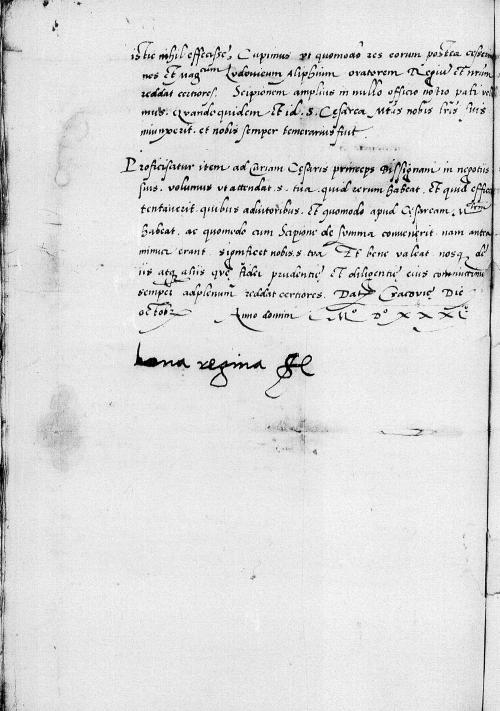 nihil effecisse, Cupimus ut quomodo res eorum postea
nes et Mag cum Ludovicum Aliphium oratorem Regiu et nrum
reddat certiores. Scipionem amplius in nullo officio nostro pati
mus. Quandoquidem et id. s. Cesarea Mtas nobis lris suis
iniunxerit. et nobis semper temerarius fuit.
Proficiscitur item ad curiam Cesaris princeps Bissignani in negotiis
suis. volumus ut attendat. s. tua. quid rerum habeat. Et quid
tentaverit. quibus adiutoribus. Et quomodo apud Cesaream
habeat. ac quomodo cum Scipione de summa convenerit. nam antea
inimici erant. significet nobis. s tva. Et bene valeat nosq de
iis atq aliis que fidei prudentie et diligentie eius
semper adplenum reddat certiores. Dat Cracovie Die
octobr Anno domini Mo Do XXX
bona regina